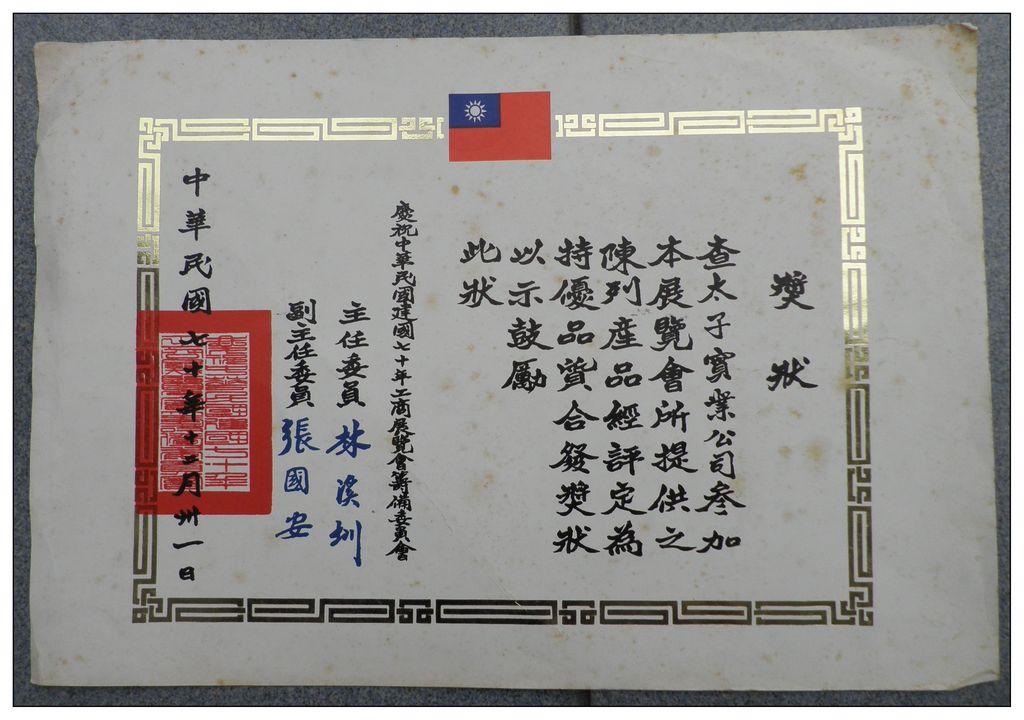 獎狀
查太子實業公司參加
本展覽會所提供之
陳列產品經評定為
特優品質合發獎狀
以示鼓勵
此狀
慶祝中華民國建國七十年工商展覽會籌備委員會
主任委員 林溪圳
副主任委員 張國安
中華民國七十年十二月卅一日